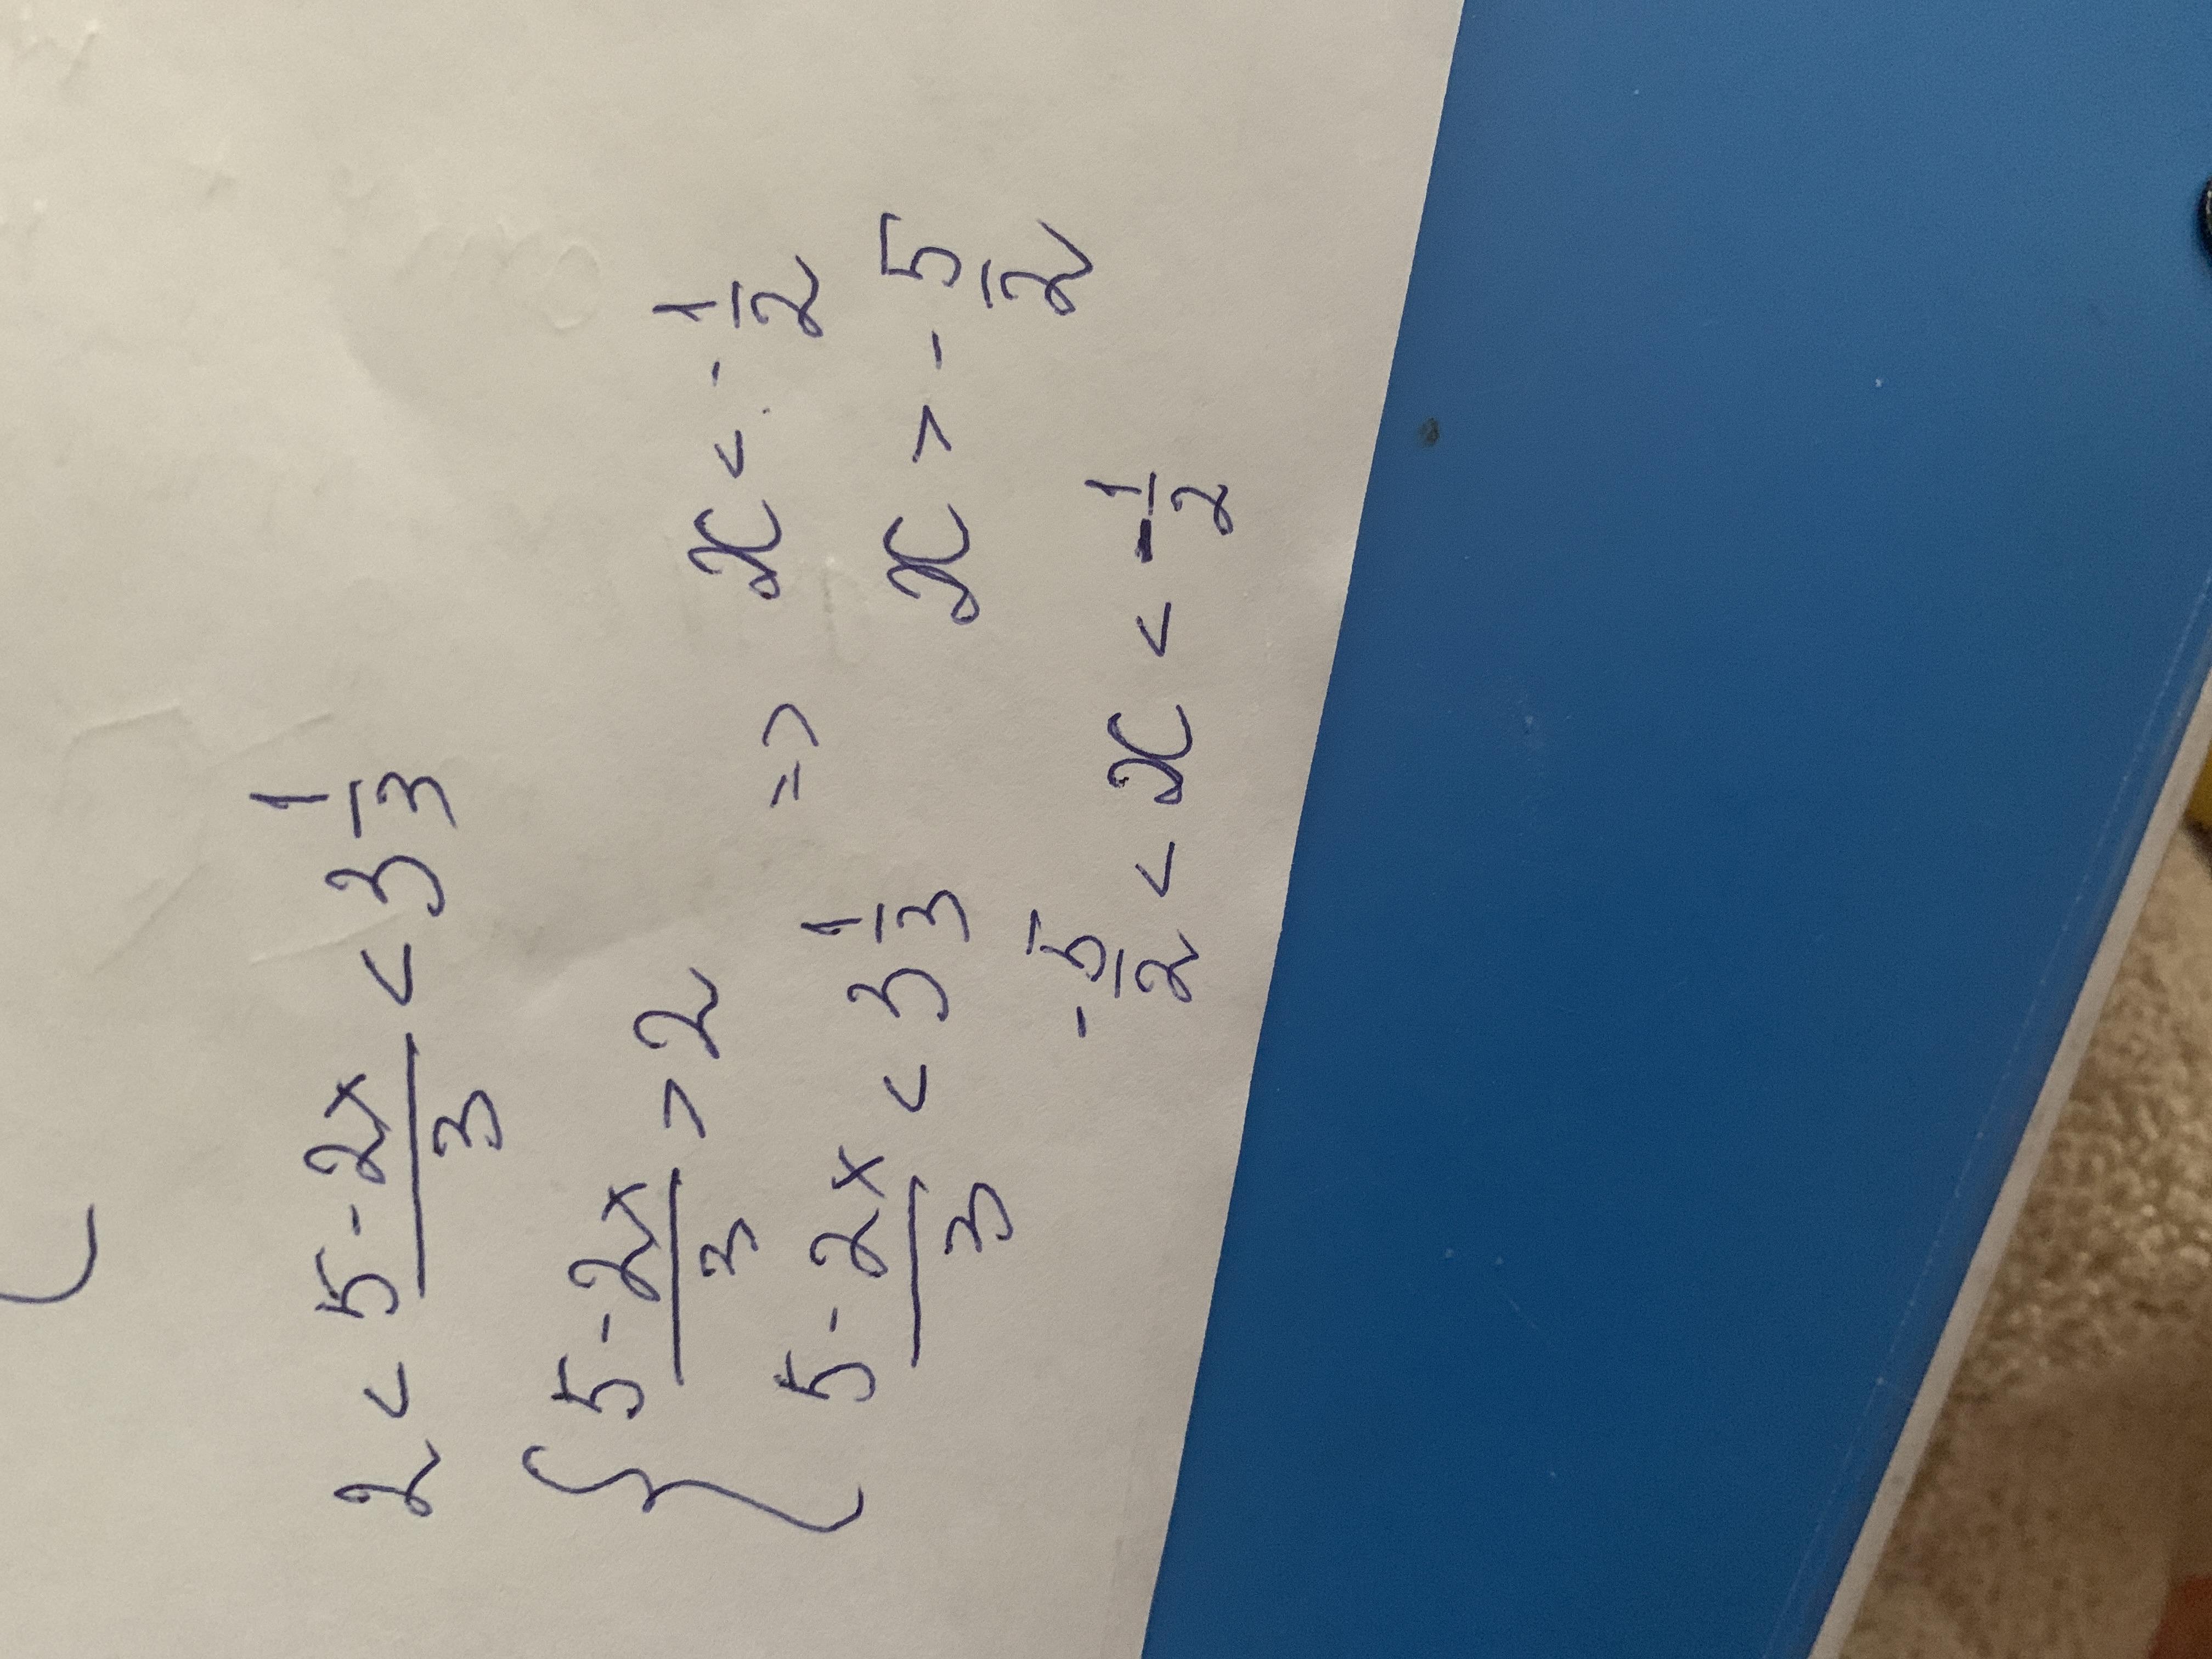 2 < (5-2x)/3 < 3 1/3
{ (5-2x)/3 > 2 => x < - 1/2
(5-2x)/3 < 3 1/3 x > - 5/2
- 5/2 < x < - 1/2